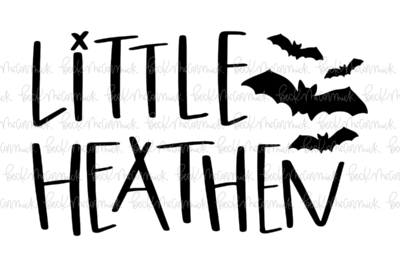 LITTLE
HEATHEN